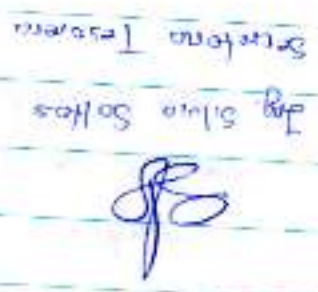 Ing. Silvia Saltos
Secretaria Tesorera